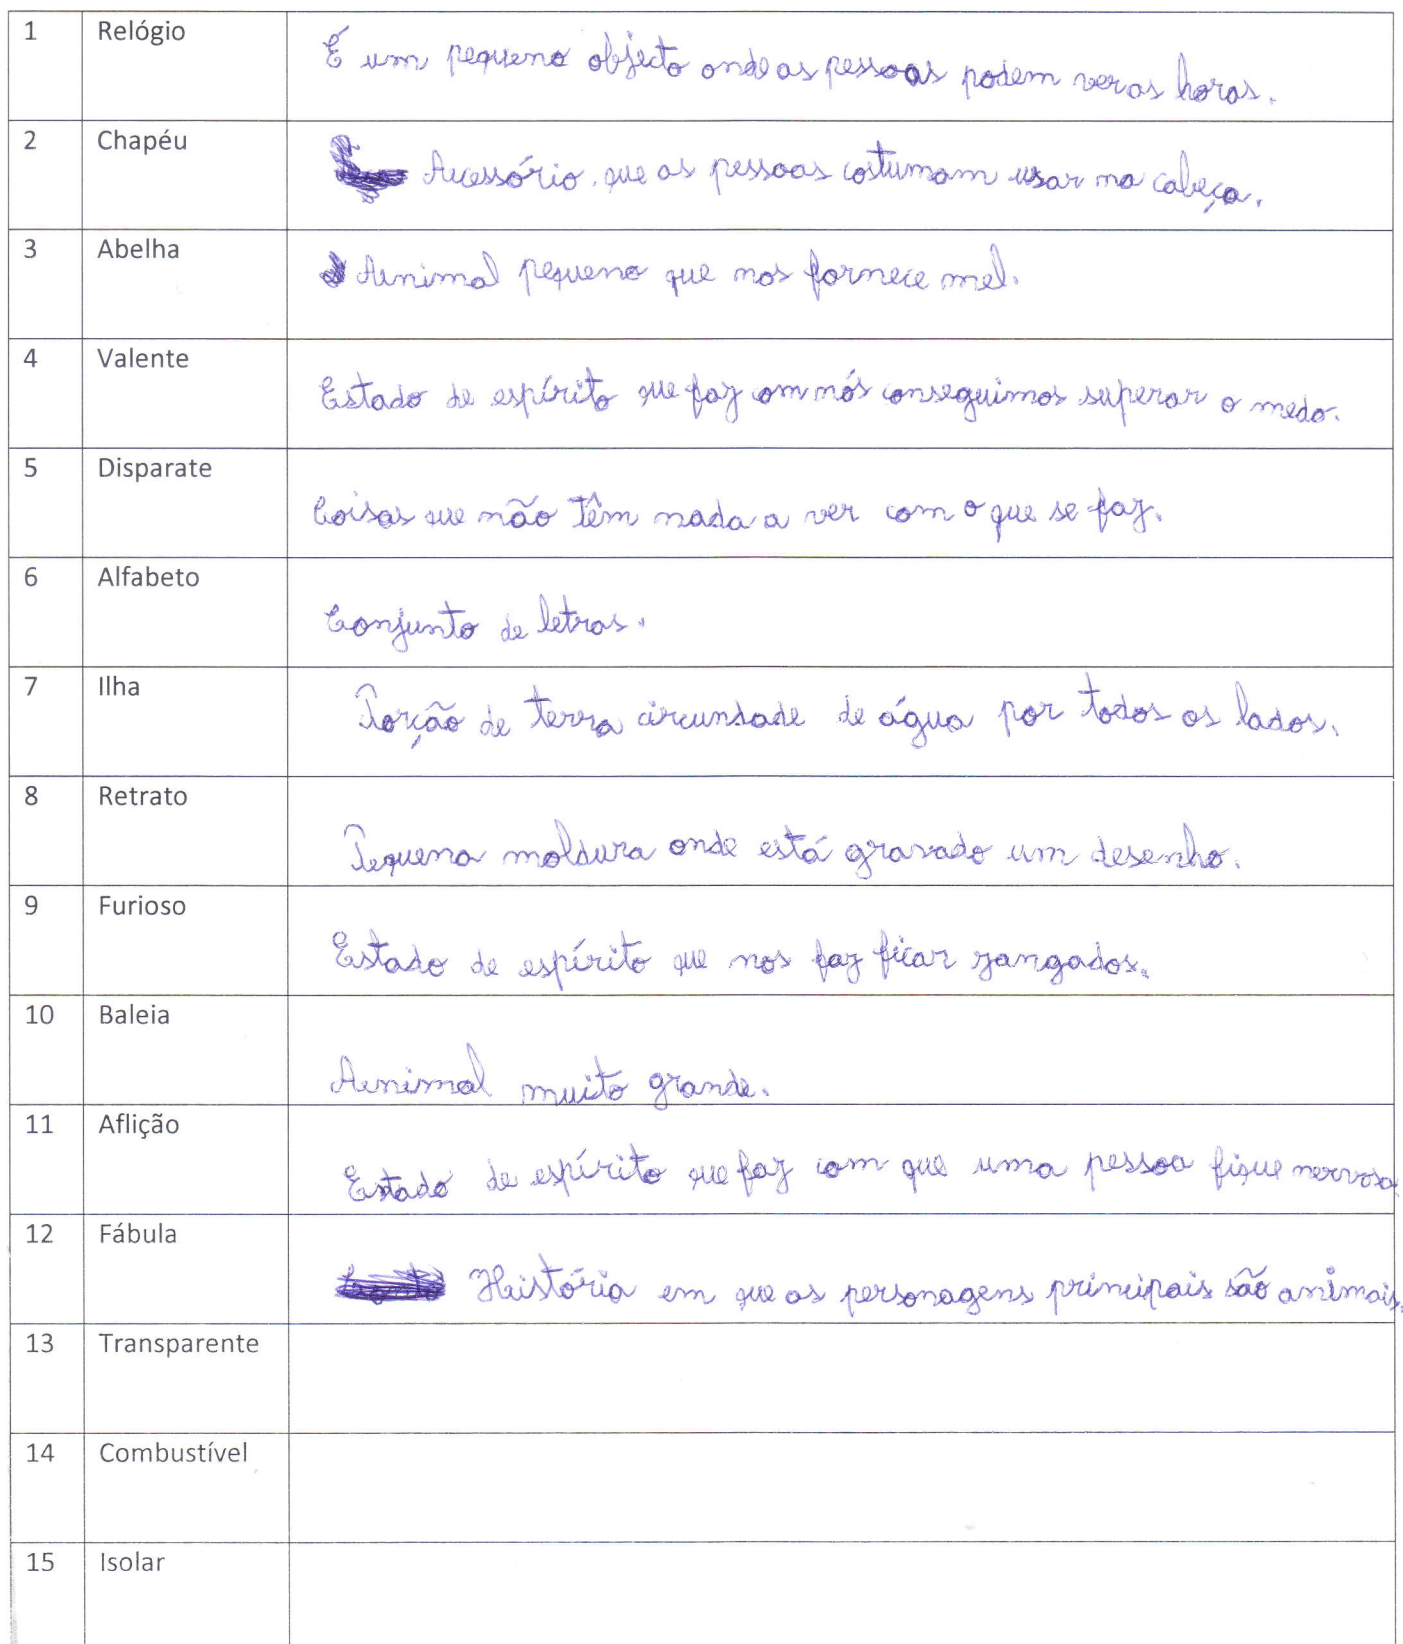 1 Relógio É um pequeno objecto onde as pessoas podem ver as horas.
2 Chapéu Acessório que as pessoas costumam usar na cabeça.
3 Abelha Animal pequeno que nos fornece mel.
4 Valente Estado de espírito que faz com nós conseguimos superar o medo.
5 Disparate Coisas que não têm nada a ver com o que se faz.
6 Alfabeto Conjunto de letras.
7 Ilha Porção de terra circundade de água por todos os lados.
8 Retrato Pequena moldura onde está gravado um desenho.
9 Furioso Estado de espírito que nos faz ficar zangados.
10 Baleia Animal muito grande.
11 Aflição Estado de espírito que faz com que uma pessoa fique nervosa.
12 Fábula História em que as personagens principais são animais.
13 Transparente
14 Combustível
15 Isolar